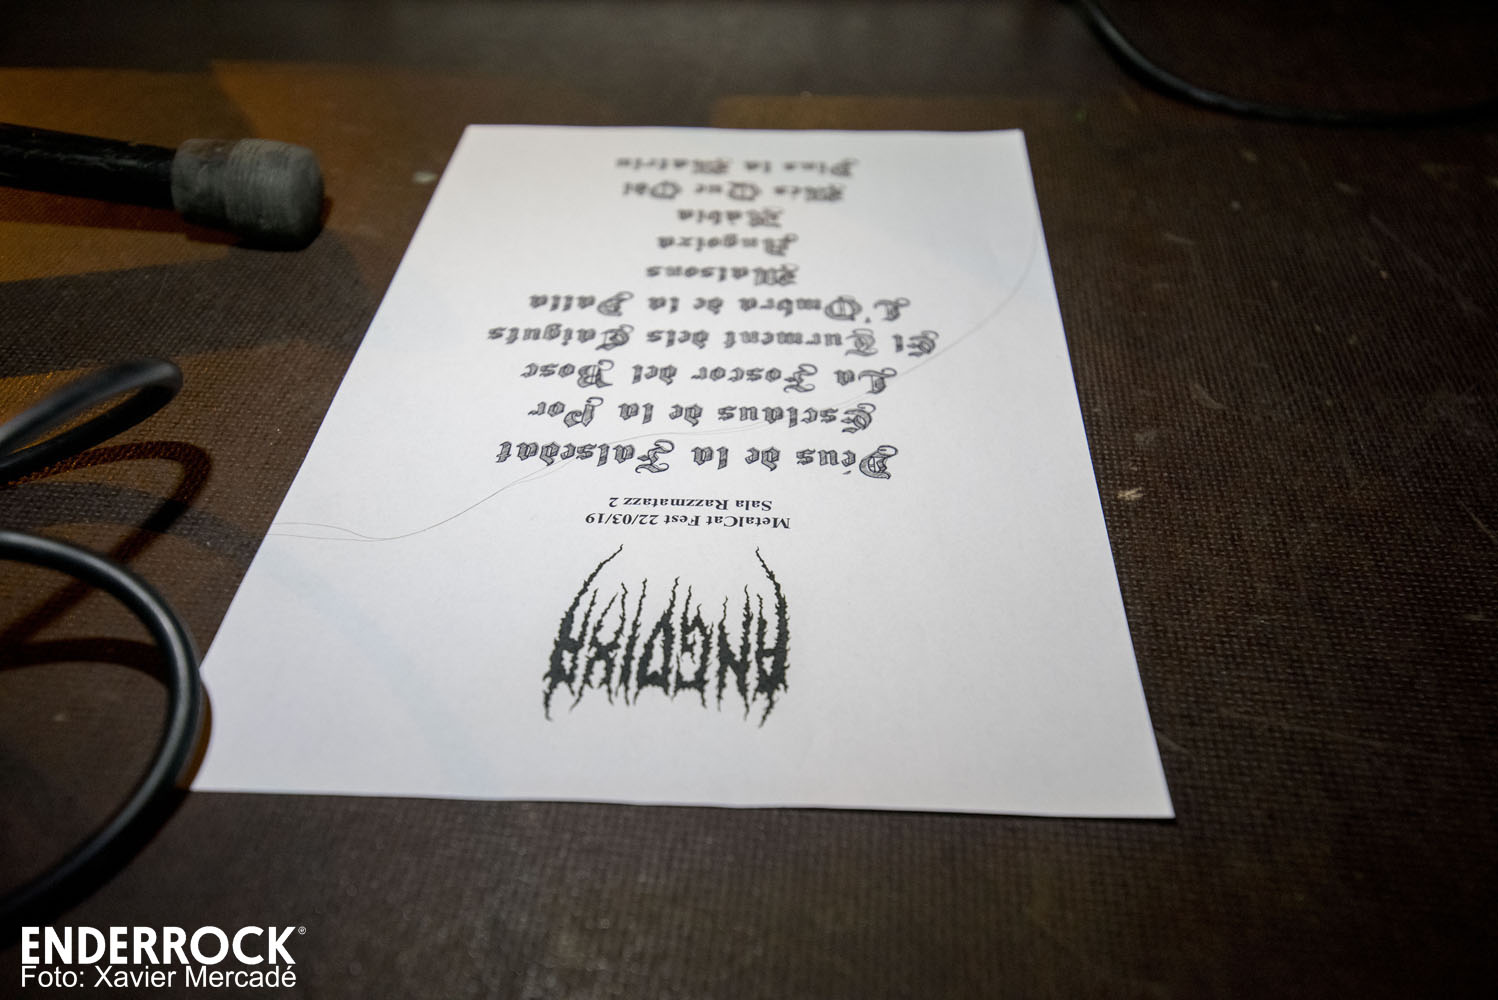 ANGOIXA
MetalCat Fest 22/03/19
Sala Razzmatazz 2
Déus de la Falsedat
Esclaus de la Por
La Foscor del Bosc
El Turment dels Caiguts
L'Ombra de la Dalla
Malsons
Angoixa
Ràbia
Més Que Odi
Dins la Matriu
ENDERROCK®
Foto: Xavier Mercadé